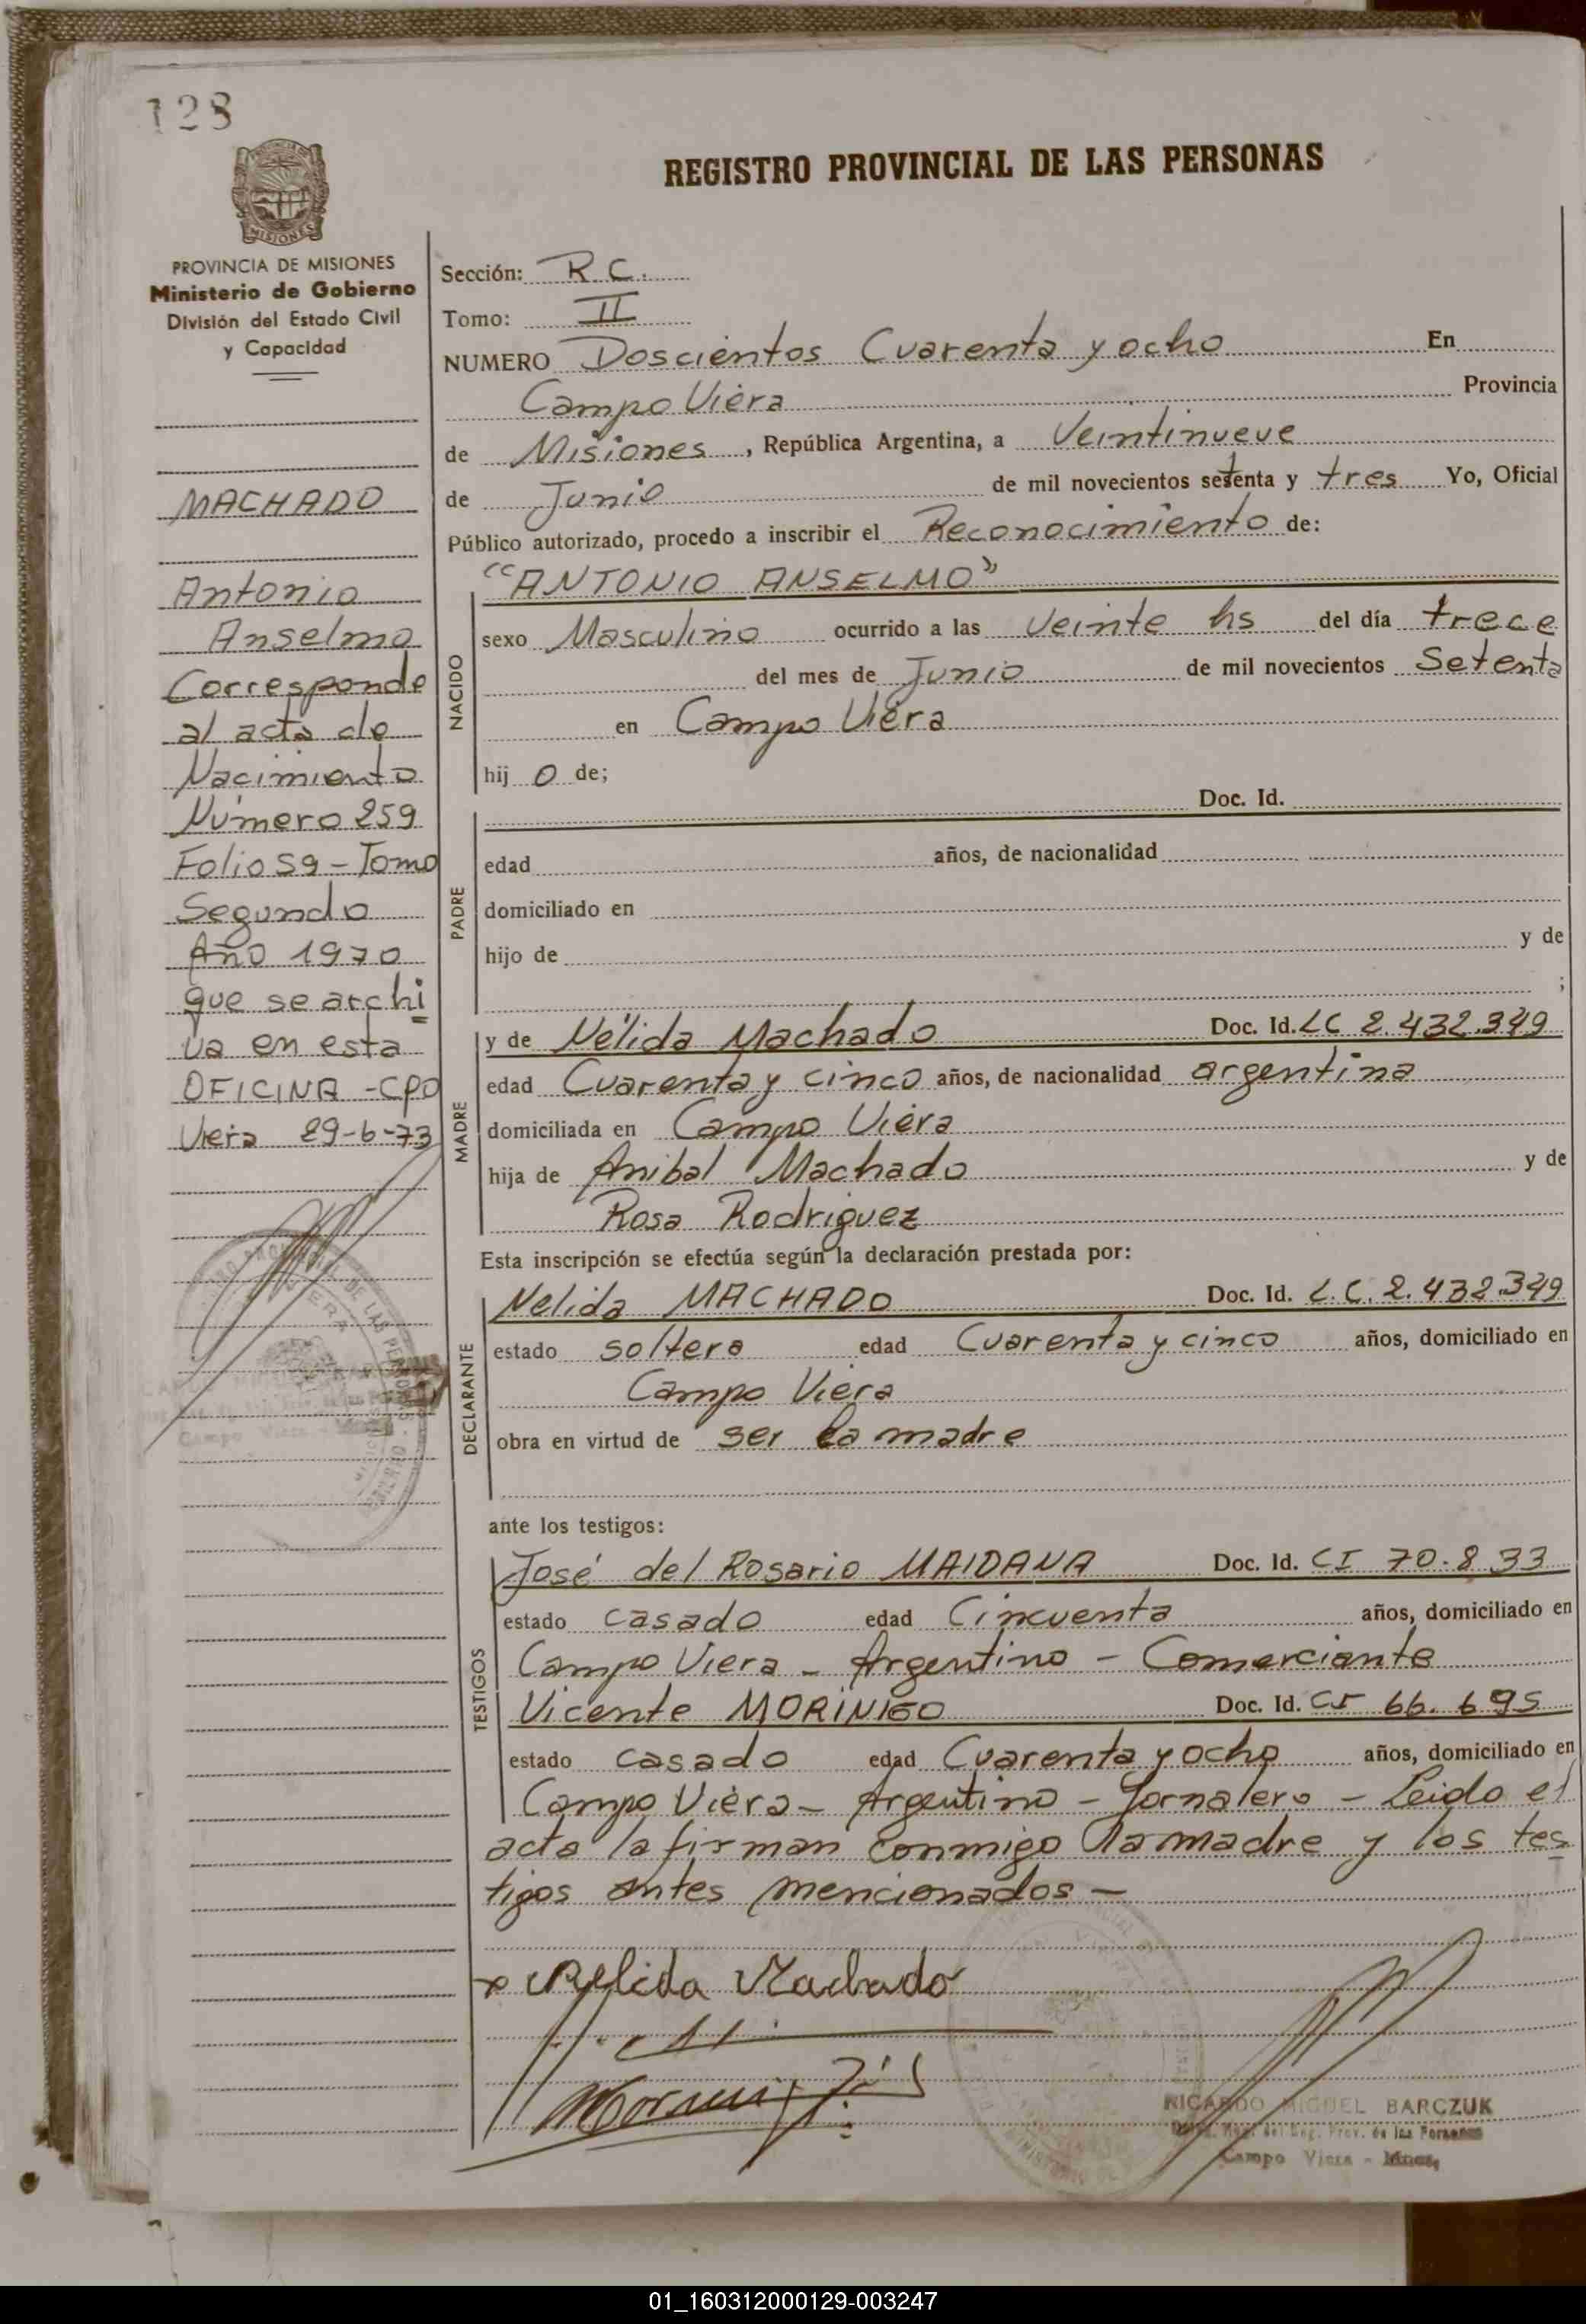 128
REGISTRO PROVINCIAL DE LAS PERSONAS
MISIONES
PROVINCIA DE MISIONES
Ministerio de Gobierno
División del Estado Civil
y Capacidad
MACHADO
Antonio
Anselmo
Corresponde
al acta de
Nacimiento
Número 259
Folio 59 - Tomo
Segundo
Año 1970
que se archi
va en esta
OFICINA - CPO
Viera 29-6-73
Sección: R.C.
Tomo: II
NUMERO Doscientos Cuarenta y ocho En
Campo Viera Provincia
de Misiones, República Argentina, a Veintinueve
de Junio de mil novecientos setenta y tres Yo, Oficial
Público autorizado, procedo a inscribir el Reconocimiento de:
"ANTONIO ANSELMO"
NACIDO
sexo Masculino ocurrido a las veinte hs del día trece
del mes de Junio de mil novecientos Setenta
en Campo Viera
hij o de;
Doc. Id.
PADRE
edad años, de nacionalidad
domiciliado en
hijo de y de
;
MADRE
y de Nélida Machado Doc. Id. LC 2.432.349
edad Cuarenta y cinco años, de nacionalidad argentina
domiciliada en Campo Viera
hija de Anibal Machado y de
Rosa Rodriguez
Esta inscripción se efectúa según la declaración prestada por:
DECLARANTE
Nelida MACHADO Doc. Id. L.C. 2.432.349
estado soltera edad Cuarenta y cinco años, domiciliado en
Campo Viera
obra en virtud de ser la madre
ante los testigos:
TESTIGOS
José del Rosario MAIDANA Doc. Id. CI 70.833
estado casado edad Cincuenta años, domiciliado en
Campo Viera - Argentino - Comerciante
Vicente MORINIGO Doc. Id. CI 66.695
estado casado edad Cuarenta y ocho años, domiciliado en
Campo Viera - Argentino - Jornalero - Leido el
acta la firman conmigo la madre y los tes
tigos antes mencionados -
x Nelida Machado
RICARDO MIGUEL BARCZUK
Reg. Prov. de las Personas
Campo Viera - Mnes.
01_160312000129-003247